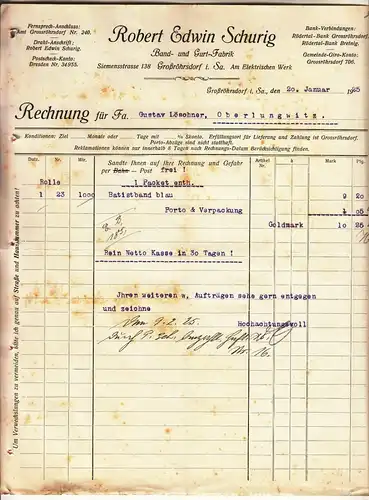 Fernsprech-Anschluss:
Amt Grossröhrsdorf Nr. 240.
Draht-Anschrift:
Robert Edwin Schurig.
Postscheck-Konto:
Dresden Nr. 34955.
Robert Edwin Schurig
Band- und Gurt-Fabrik
Siemensstrasse 138 Großröhrsdorf i. Sa. Am Elektrischen Werk
Bank-Verbindungen:
Rödertal-Bank Grossröhrsdorf.
Rödertal-Bank Bretnig.
Gemeinde-Giro-Konto:
Grossröhrsdorf 706.
Großröhrsdorf i. Sa., den 20. Januar 1925
Rechnung für Fa. Gustav Löschner, Oberlungwitz.
Konditionen: Ziel Monate oder Tage mit % Skonto. Erfüllungsort für Lieferung und Zahlung ist Grossröhrsdorf.
Porto-Abzüge sind nicht statthaft.
Reklamationen können nur innerhalb 8 Tagen nach Rechnungs-Datum Berücksichtigung finden.
Dutz. Nr. Mtr. Sandte Ihnen auf Ihre Rechnung und Gefahr Artikel № à Mk. Pfg.
per Bahn - Post frei !
Rolle 1 Packet enth.
1 23 1000 Batistband blau 9 20
Porto & Verpackung 1 05
Goldmark 10 25
Rein Netto Kasse in 30 Tagen !
Jhren weiteren w. Aufträgen sehe gern entgegen
und zeichne
Hochachtungsvoll
Am 9. 2. 25.
durch
Nr. 16.
Um Verwechslungen zu vermeiden, bitte ich genau auf Straße und Hausnummer zu achten!